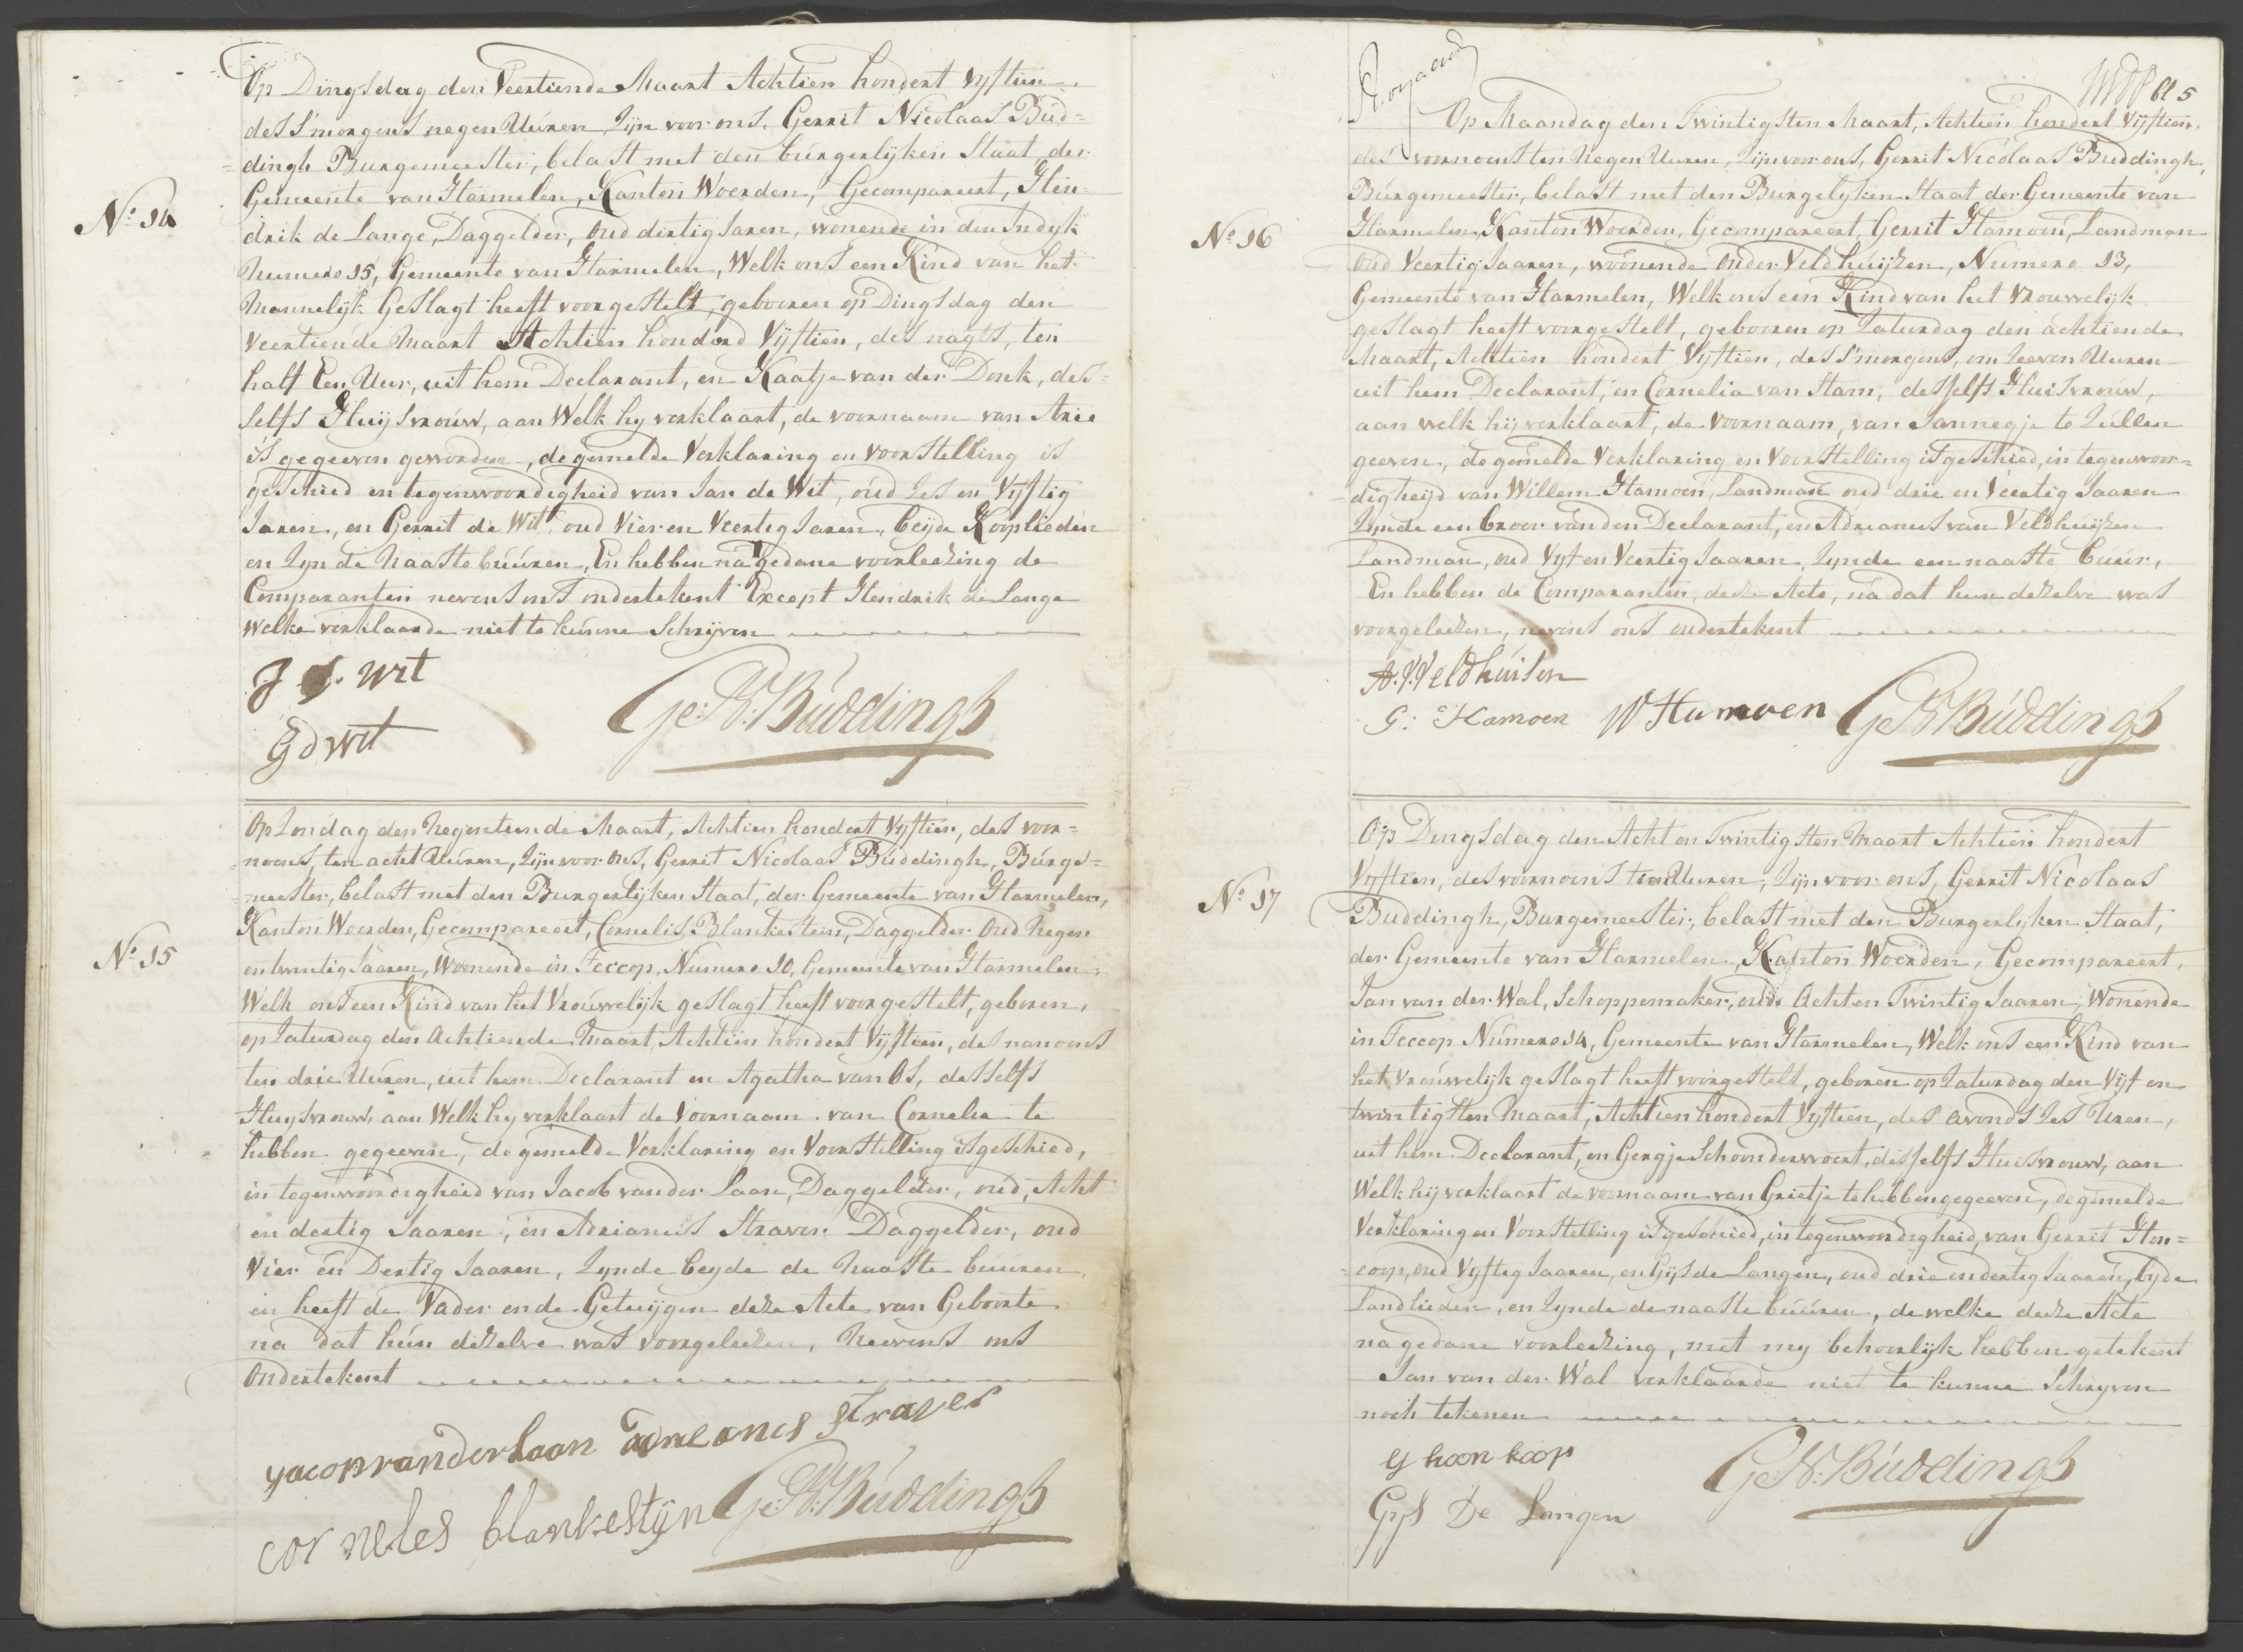 Op Dingsdag den Veertiende Maart Achtien hondert Vyftien
des S'morgens negen Uúren, Zijn voor ons, Gerrit Nicolaas Bud=
=dingh Burgemeester, belast met den búrgerlyken Staat der
Gemeente van Harmelen, Kanton Woerden, Gecompareert, Hen=
N.o 14
drik de Lange, Daggelder, Oud dertig Jaren, wonende in den Indyk
Numero 15, Gemeente van Harmelen, Welk ons een Kind van het
Mannelijk Geslagt heeft voorgestelt, gebooren op Dingsdag den
Veertiende Maart Achtien honderd Vijftien, des nagts, ten
half Een Uur, uit hem Declarant, en Kaatje van der Donk, des=
selfs Huijsvrouw, aan Welk hy verklaart, de voornaam van Arie
is gegeeven geworden, de gemelde Verklaring en voorstelling is
geschied in tegenwoordigheid van Jan de Wit, oúd Zes en Vyftig
Jaren, en Gerrit de Wit, oud Vier en Veertig Jaren, beijde Kooplieden
en Zynde Naaste búuren, En hebben na gedane voorleezing de
Comparanten nevens ons ondertekent Except Hendrik de Lange
Welke verklaarde niet te kúnne Schryven
J d. wit
G d wit
Ge: N: Búddingh
Op Zondag den Negentiende Maart, Achtien hondert Vyftien, des voor=
=noens, ten acht Uúren, Zijn voor ons, Gerrit Nicolaas Búddingh, Búrge=
=meester, belast met den Burgerlyken Staat, der Gemeente van Harmelen,
Kanton Woerden, Gecompareert, Cornelis Blankestein, Daggelder Oud Negen
N.o 15
en twintig Jaaren, Woonende in Teccop, Numero 10, Gemeente van Harmelen,
Welk ons een Kind van het Vrouwelijk geslagt heeft voorgestelt, geboren,
op Zaturdag den Achtiende Maart Achtien hondert Vijftien, des nanoens
ten drie Uuren, uit hem Declarant en Agatha van Os, desselfs
Huysvrouw, aan Welk hy verklaart de Voornaam van Cornelia te
hebben gegeeven, de gemelde Verklaring en Voorstelling is geschied,
in tegenwoordigheid van Jacob van der Laan, Daggelder, oud, Acht
en dertig Jaaren, en Adrianus Straver Daggelder, oud
Vier en Dertig Jaaren, Zynde beyde de Naaste búuren,
en heeft de Vader en de Getuijgen deze Acte van Geboorte
na dat hún dezelve was voorgeleezen, Neevens ons
Ondertekent
yacop vander Laan Adreanes Straver
corneles blankestyn Ge: N: Búddingh
bl 5
Op Maandag den Twintigsten Maart, Achtien hondert Vijftien,
des voornoens ten Negen Uuren, Zijn voor ons, Gerrit Nicolaas Buddingh,
Búrgemeester, belast met den Burgelyken Staat der Gemeente van
N.o 16
Harmelen, Kanton Woerden, Gecompareert, Gerrit Hamoen, Landman
Oud Veertig Jaaren, woonende Onder Veldhuijzen, Numero 13,
Gemeente van Harmelen, Welk ons een Kind van het Vrouwelijk
geslagt heeft voorgestelt, gebooren op Zaturdag den achtiende
Maart, Achtien hondert Vyftien, des S'morgens, om Zeeven Uuren
uit hem Declarant, en Cornelia van Stam, desselfs Huisvrouw,
aan welk hij verklaart, de Voornaam, van Jannegje te Zúllen
geeven, de gemelde Verklaring en Voorstelling is geschied, in tegenwoor=
=digheijd van Willem Hamoen, Landman oud drie en Veertig Jaaren
Zynde een broer van den Declarant, en Adrianus van Veldhuijzen
Landman, oud Vyf en Veertig Jaaren, Zynde een naaste buúr,
En hebben de Comparanten, deeze Acte, na dat hun dezelve was
voorgeleezen, nevens ons ondertekent
A. V. Veldhuisen
G: Hamoen W Hamoen Ge N Búddingh
Op Dingsdag den Acht en Twintigsten Maart Achtien hondert
Vyftien, des voornoens tien Uuren, Zijn voor ons, Gerrit Nicolaas
N.o 17
Buddingh, Burgemeester, belast met den Burgerlyken Staat,
der Gemeente van Harmelen, Kanton Woerden, Gecompareert,
Jan van der Wal, Schoppemaker, oud Acht en Twintig Jaaren, Wonende
in Teccop Número 14, Gemeente van Harmelen, Welk ons een Kind van
het Vrouwelijk geslagt heeft voorgestelt, geboren op Zaturdag den Vijf en
twintigsten Maart, Achtien hondert Vyftien, des avonds Zes Uren,
uit hem Declarant, en Gergje Schoonderwoert, desselfs Huisvrouw, aan
Welk hij verklaart de voornaam van Grietje te hebben gegeeven, de gemelde
Verklaring en Voorstelling is geschied, in tegenwoordigheid, van Gerrit Hon=
=coop, oud Vyftig Jaaren, en Gijs de Langen, oud drie en dertig Jaaren, byde
Landlieden, en Zynde de naaste búuren, de welke deeze Acte
na gedane voorleezing, met my behoorlijk hebben getekent
Jan van der Wal verklaarde niet te kunne Schryven
noch tekenen
G hoon koop
Gijs De Langen
Ge: N: Búddingh